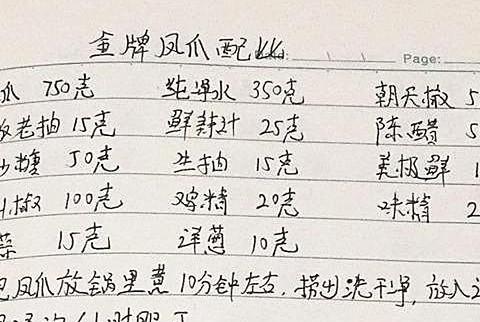 金牌凤爪配比
Page:
爪 750克 纯净水 350克 朝天椒 5
老抽 15克 鲜蒜汁 25克 陈醋 5
糖 50克 生抽 15克 美极鲜 1
椒 100克 鸡精 20克 味精 2
15克 洋葱 10克
凤爪放锅里煮10分钟左右，捞出洗干净，放入